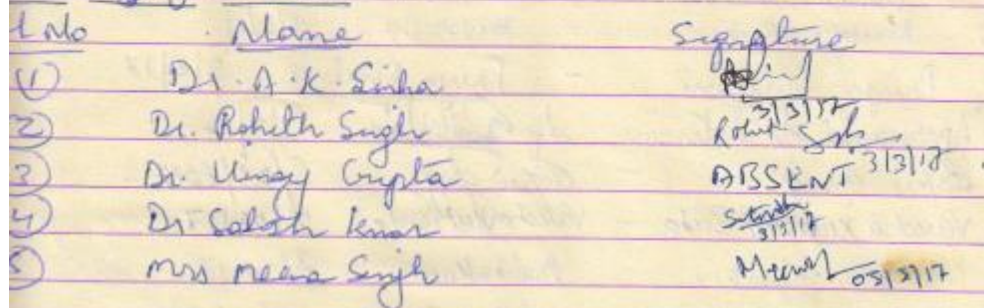 S.No Name Signature
(1) Dr. A. K. Sinha 3/3/17
(2) Dr. Rohith Singh Rohit 3/3/17
(3) Dr. Vinay Gupta ABSENT
(4) Dr. Satish Kumar 3/3/17
(5) Mrs Meera Singh 03/3/17